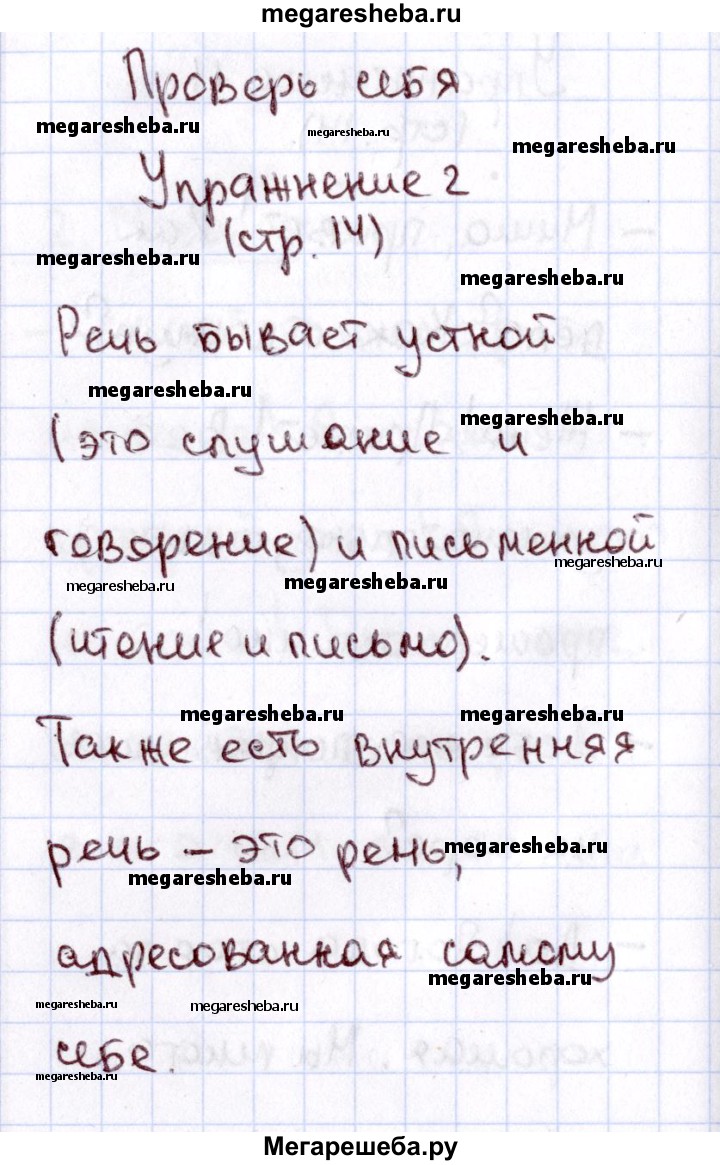 megaresheba.ru
Проверь себя
megaresheba.ru
megaresheba.ru
megaresheba.ru
Упражнение 2
(стр. 14)
megaresheba.ru
megaresheba.ru
Речь бывает устной
megaresheba.ru
megaresheba.ru
(это слушание и
говорение) и письменной
megaresheba.ru
megaresheba.ru
megaresheba.ru
(чтение и письмо).
megaresheba.ru
megaresheba.ru
Также есть внутренняя
речь – это речь,
megaresheba.ru
megaresheba.ru
адресованная самому
megaresheba.ru
megaresheba.ru
megaresheba.ru
себе.
megaresheba.ru
Мегарешеба.ру